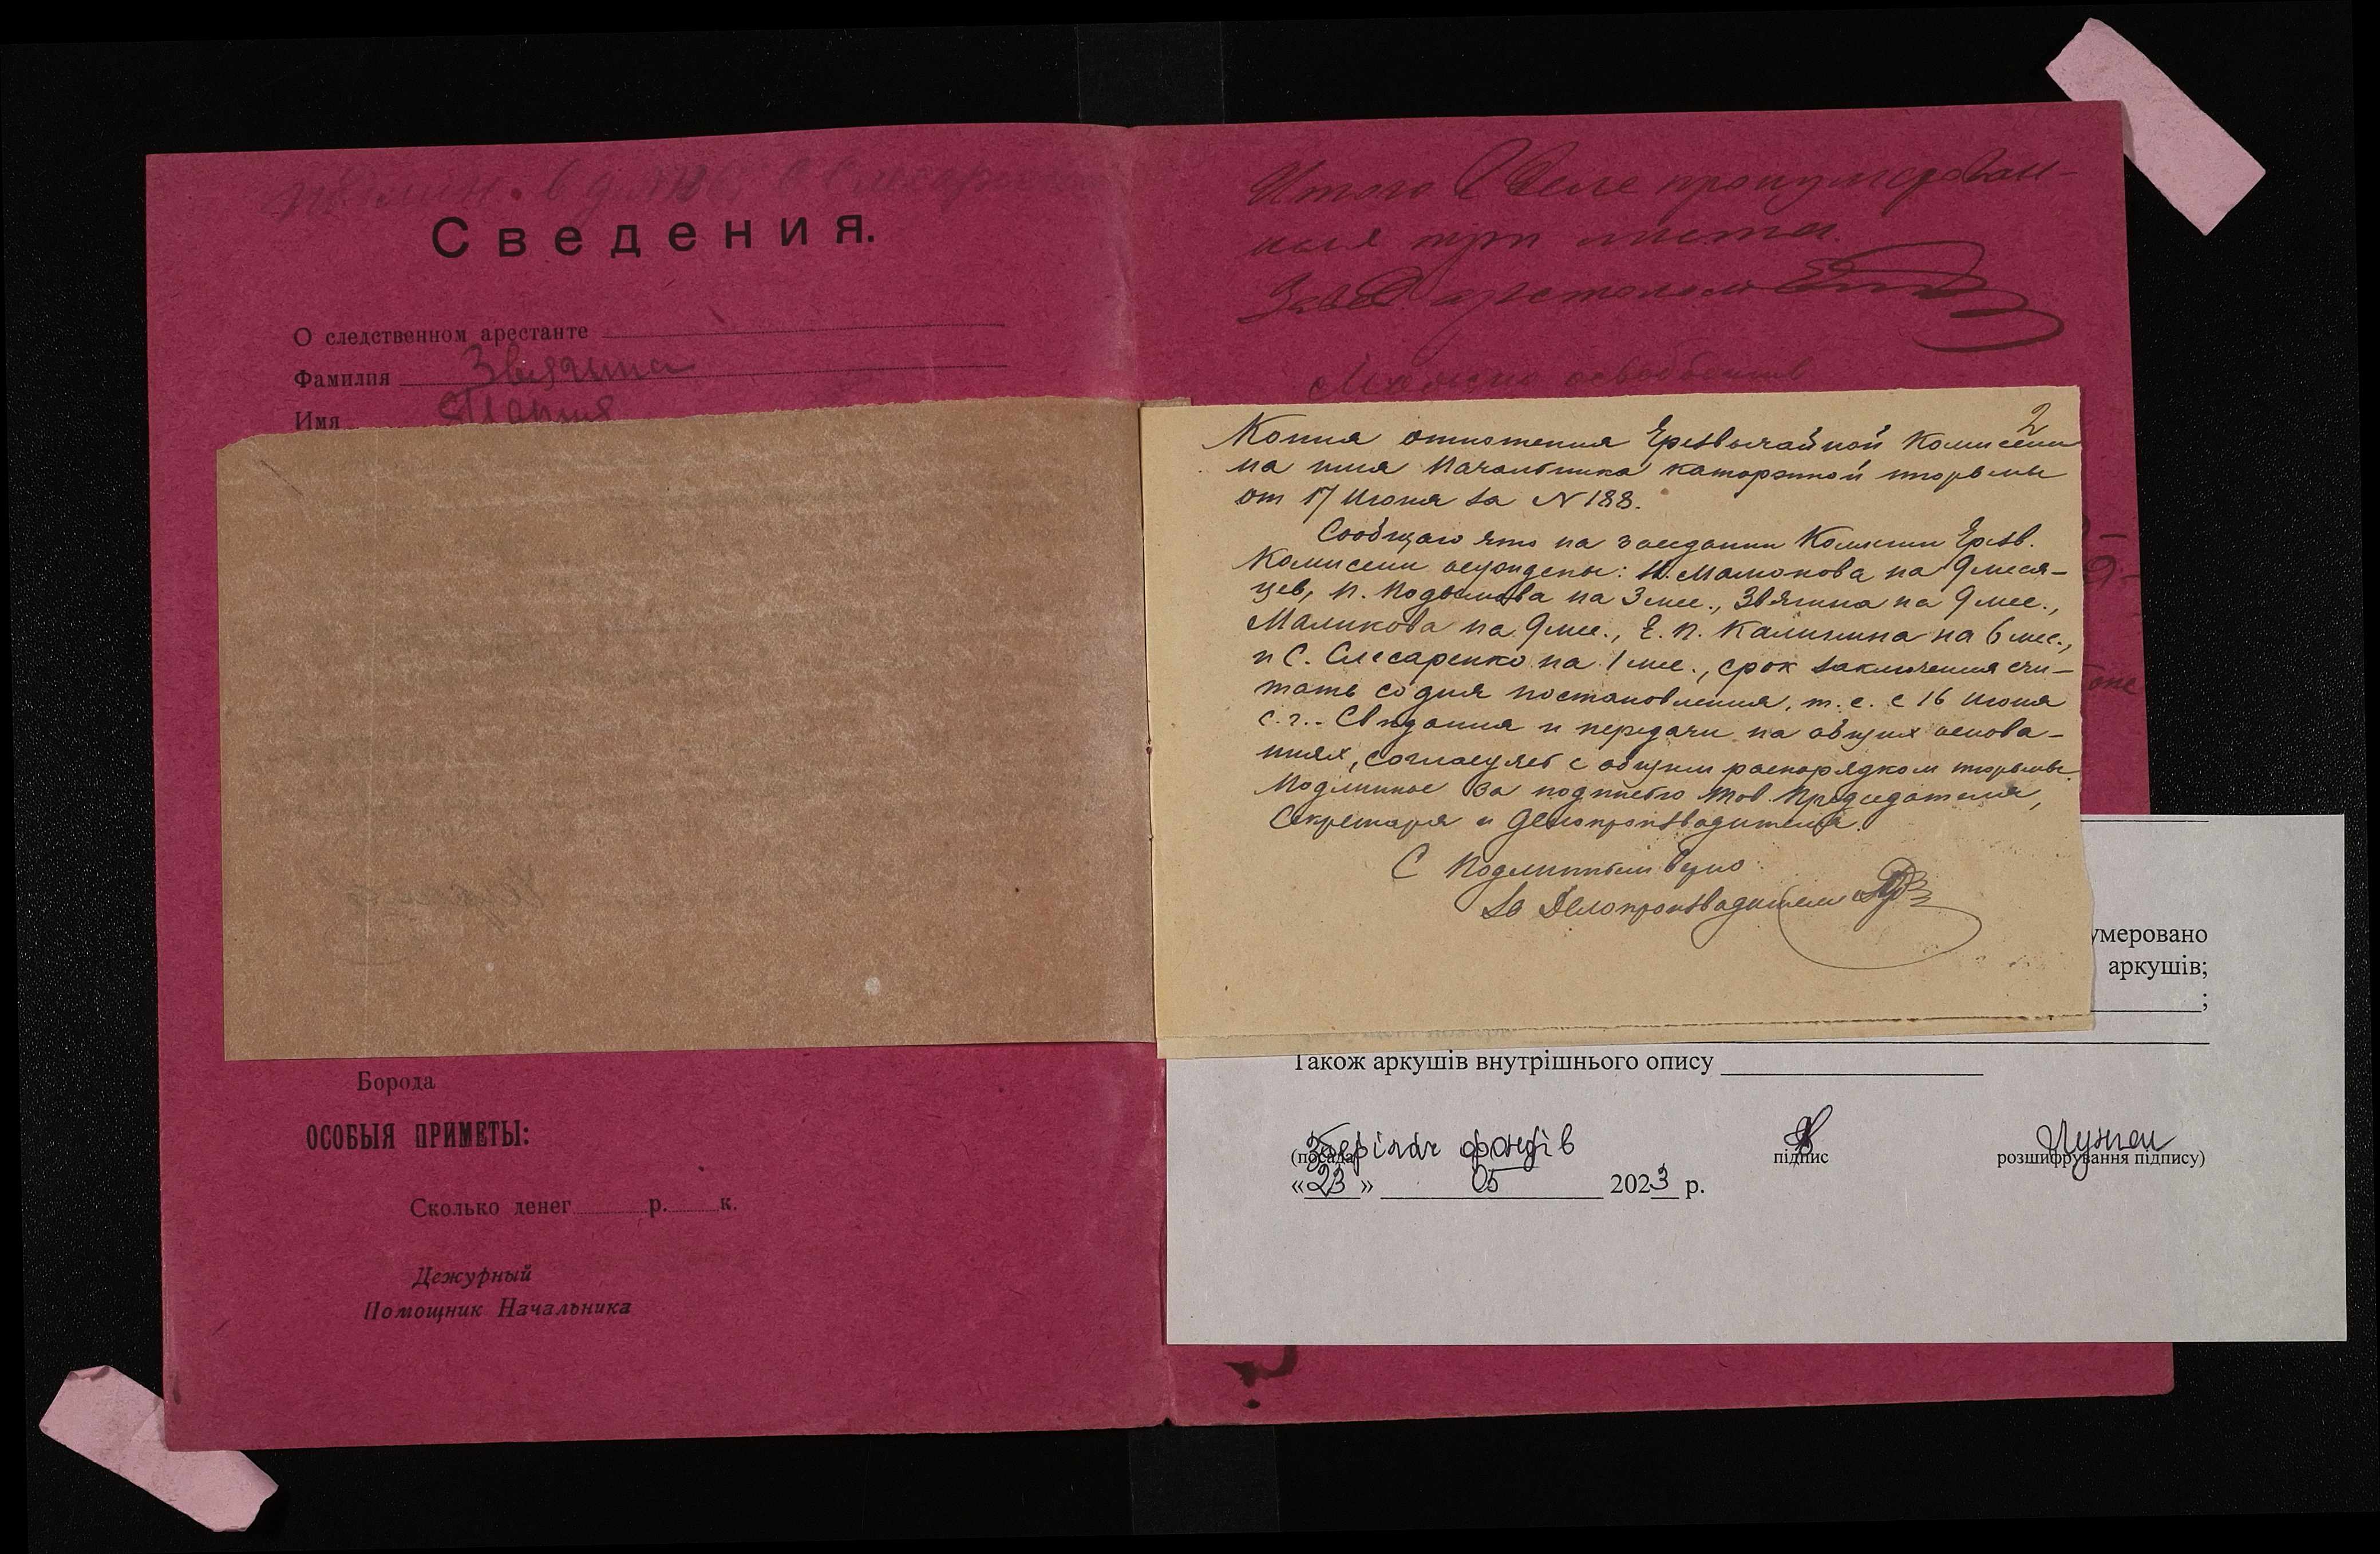 Сведения.
О следственном арестанте
Фамилия Звягина
Имя Мария
Борода
ОСОБЫЯ ПРИМЕТЫ:
Сколько денег р. к.
Дежурный
Помощник Начальника
Итого в деле пронумерован-
ных три листа.
Зав. арестным
Можно освободить
2
Копия отношения Чрезвычайной Комиссии
на имя Начальника каторжной тюрьмы
от 17 Июня за № 188.
Сообщаю что на заседании Комиссии Чрезв.
Комиссии осуждены: Мамонова на 9 меся-
цев, П. Подымова на 3 мес., Звягина на 9 мес.,
Маликова на 9 мес., Е. П. Калинина на 6 мес.,
и С. Слесаренко на 1 мес., срок заключения счи-
тать со дня постановления, т. е. с 16 Июня
с. г.. Свидания и передачи на общих основа-
ниях, согласуясь с общим распорядком тюрьмы.
Подлинное за подписью Тов. Председателя,
Секретаря и Делопроизводителя.
С Подлинным верно:
За Делопроизводителя
умеровано
аркушів;
;
Також аркушів внутрішнього опису
Зберігач фондів
(посада підпис розшифрування підпису)
«23» 05 2023 р.